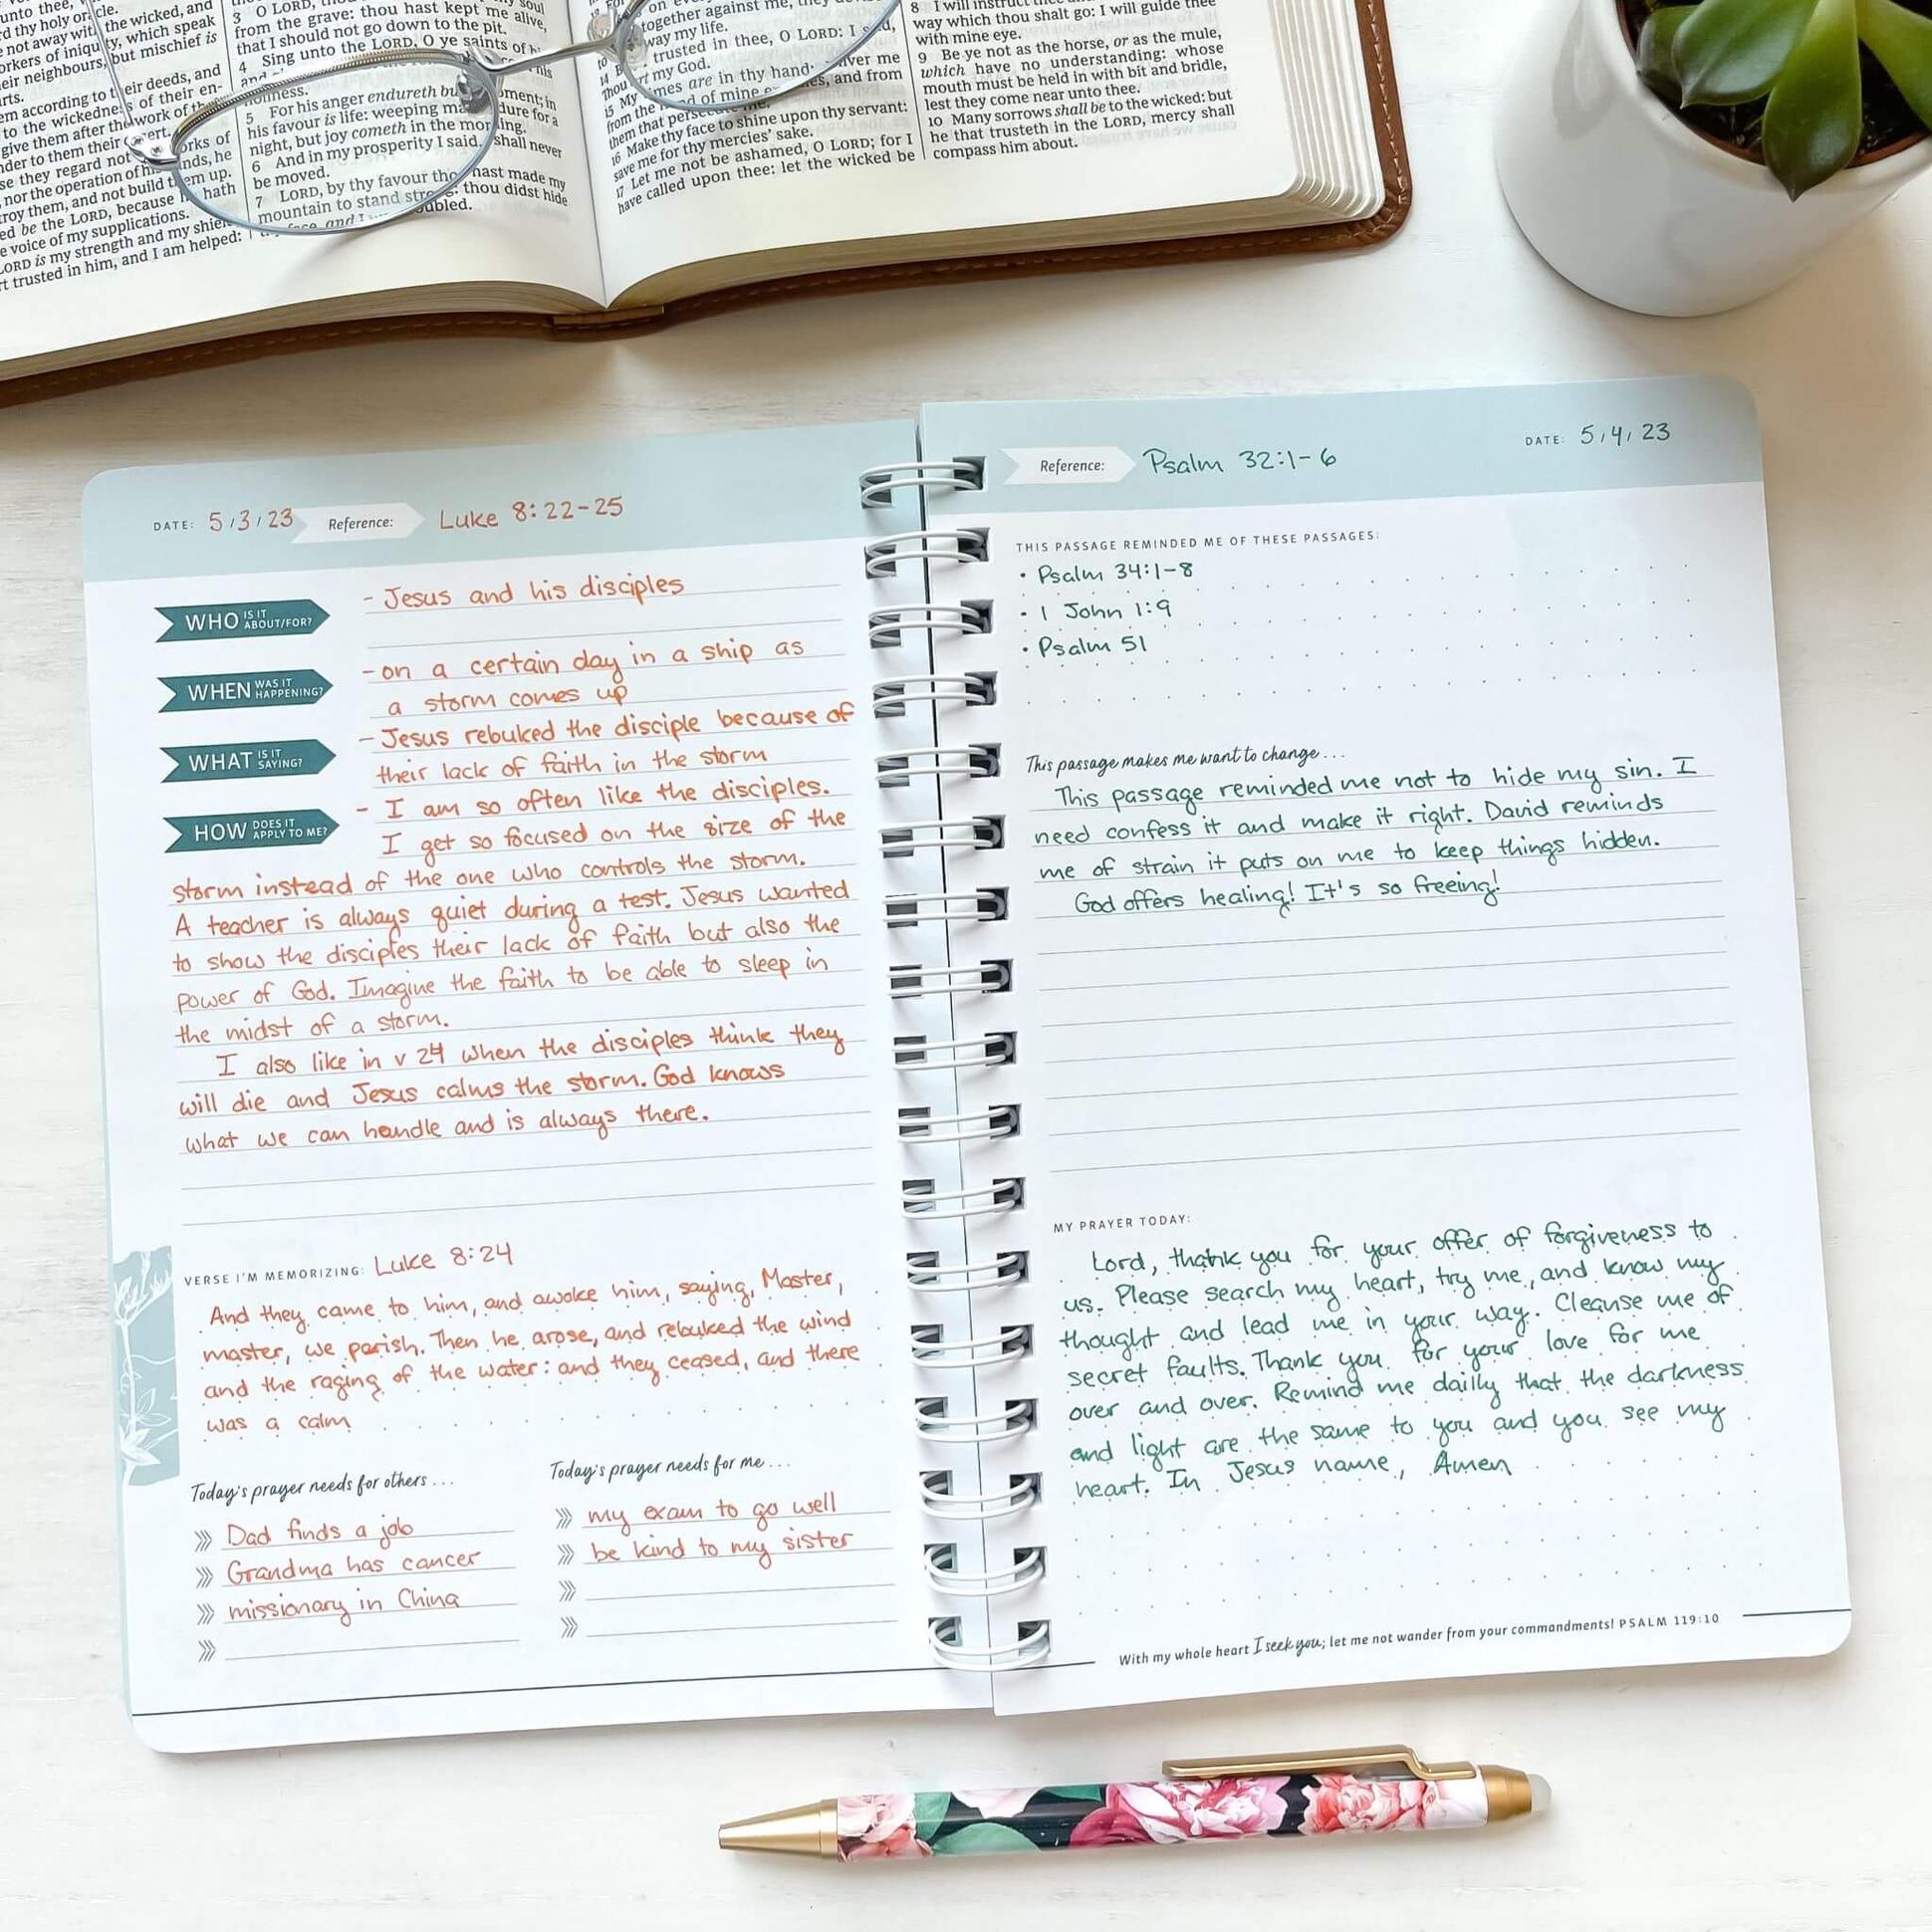 unto thee,
thy holy oracle.
not away with the wicked, and
workers of iniquity, which speak
their neighbours, but mischief is
according to their deeds, and
to the wickedness of their en-
give them after the work of
to them their
they regard not
nor the operation of
them, and not build them up.
be the LORD, because
voice of my supplications.
LORD is my strength and my
trusted in him, and I am helped:
3 O LORD, soul
from the grave: thou hast kept me alive,
that I should not go down to the pit.
4 Sing unto the LORD, O ye saints of
holiness.
5 For his anger endureth
his favour is life: weeping
night, but joy cometh in the morning.
6 And in my prosperity I said, shall never
be moved.
7 LORD, by thy favour hast made my
mountain to stand thou didst hide
face, and I
together against me, they
away my life.
trusted in thee, O LORD: I
my God.
15 My are in thy
from the of mine and from
them that persecute me.
16 Make thy face to shine upon thy servant:
save me for thy mercies' sake.
17 Let me not be ashamed, O LORD; for I
have called upon thee: let the wicked be
8 I will instruct
way which thou shalt go: I will guide thee
with mine eye.
9 Be ye not as the horse, or as the mule,
which have no understanding: whose
mouth must be held in with bit and bridle,
lest they come near unto thee.
10 Many sorrows shall be to the wicked: but
he that trusteth in the LORD, mercy shall
compass him about.
DATE: 5/3/23 Reference: Luke 8:22-25
WHO IS IT ABOUT/FOR? - Jesus and his disciples
WHEN WAS IT HAPPENING? - on a certain day in a ship as
a storm comes up
WHAT IS IT SAYING? - Jesus rebuked the disciple because of
their lack of faith in the storm
HOW DOES IT APPLY TO ME? - I am so often like the disciples.
I get so focused on the size of the
storm instead of the one who controls the storm.
A teacher is always quiet during a test. Jesus wanted
to show the disciples their lack of faith but also the
power of God. Imagine the faith to be able to sleep in
the midst of a storm.
I also like in v 24 when the disciples think they
will die and Jesus calms the storm. God knows
what we can handle and is always there.
VERSE I'M MEMORIZING: Luke 8:24
And they came to him, and awoke him, saying, Master,
master, we parish. Then he arose, and rebuked the wind
and the raging of the water: and they ceased, and there
was a calm
Today's prayer needs for others ...
Dad finds a job
Grandma has cancer
missionary in China
Today's prayer needs for me ...
my exam to go well
be kind to my sister
Reference: Psalm 32:1-6 DATE: 5/4/23
THIS PASSAGE REMINDED ME OF THESE PASSAGES:
• Psalm 34:1-8
• 1 John 1:9
• Psalm 51
This passage makes me want to change ...
This passage reminded me not to hide my sin. I
need confess it and make it right. David reminds
me of strain it puts on me to keep things hidden.
God offers healing! It's so freeing!
MY PRAYER TODAY:
Lord, thank you for your offer of forgiveness to
us. Please search my heart, try me, and know my
thought and lead me in your way. Cleanse me of
secret faults. Thank you for your love for me
over and over. Remind me dailly that the darkness
and light are the same to you and you see my
heart. In Jesus name, Amen
With my whole heart I seek you; let me not wander from your commandments! PSALM 119:10